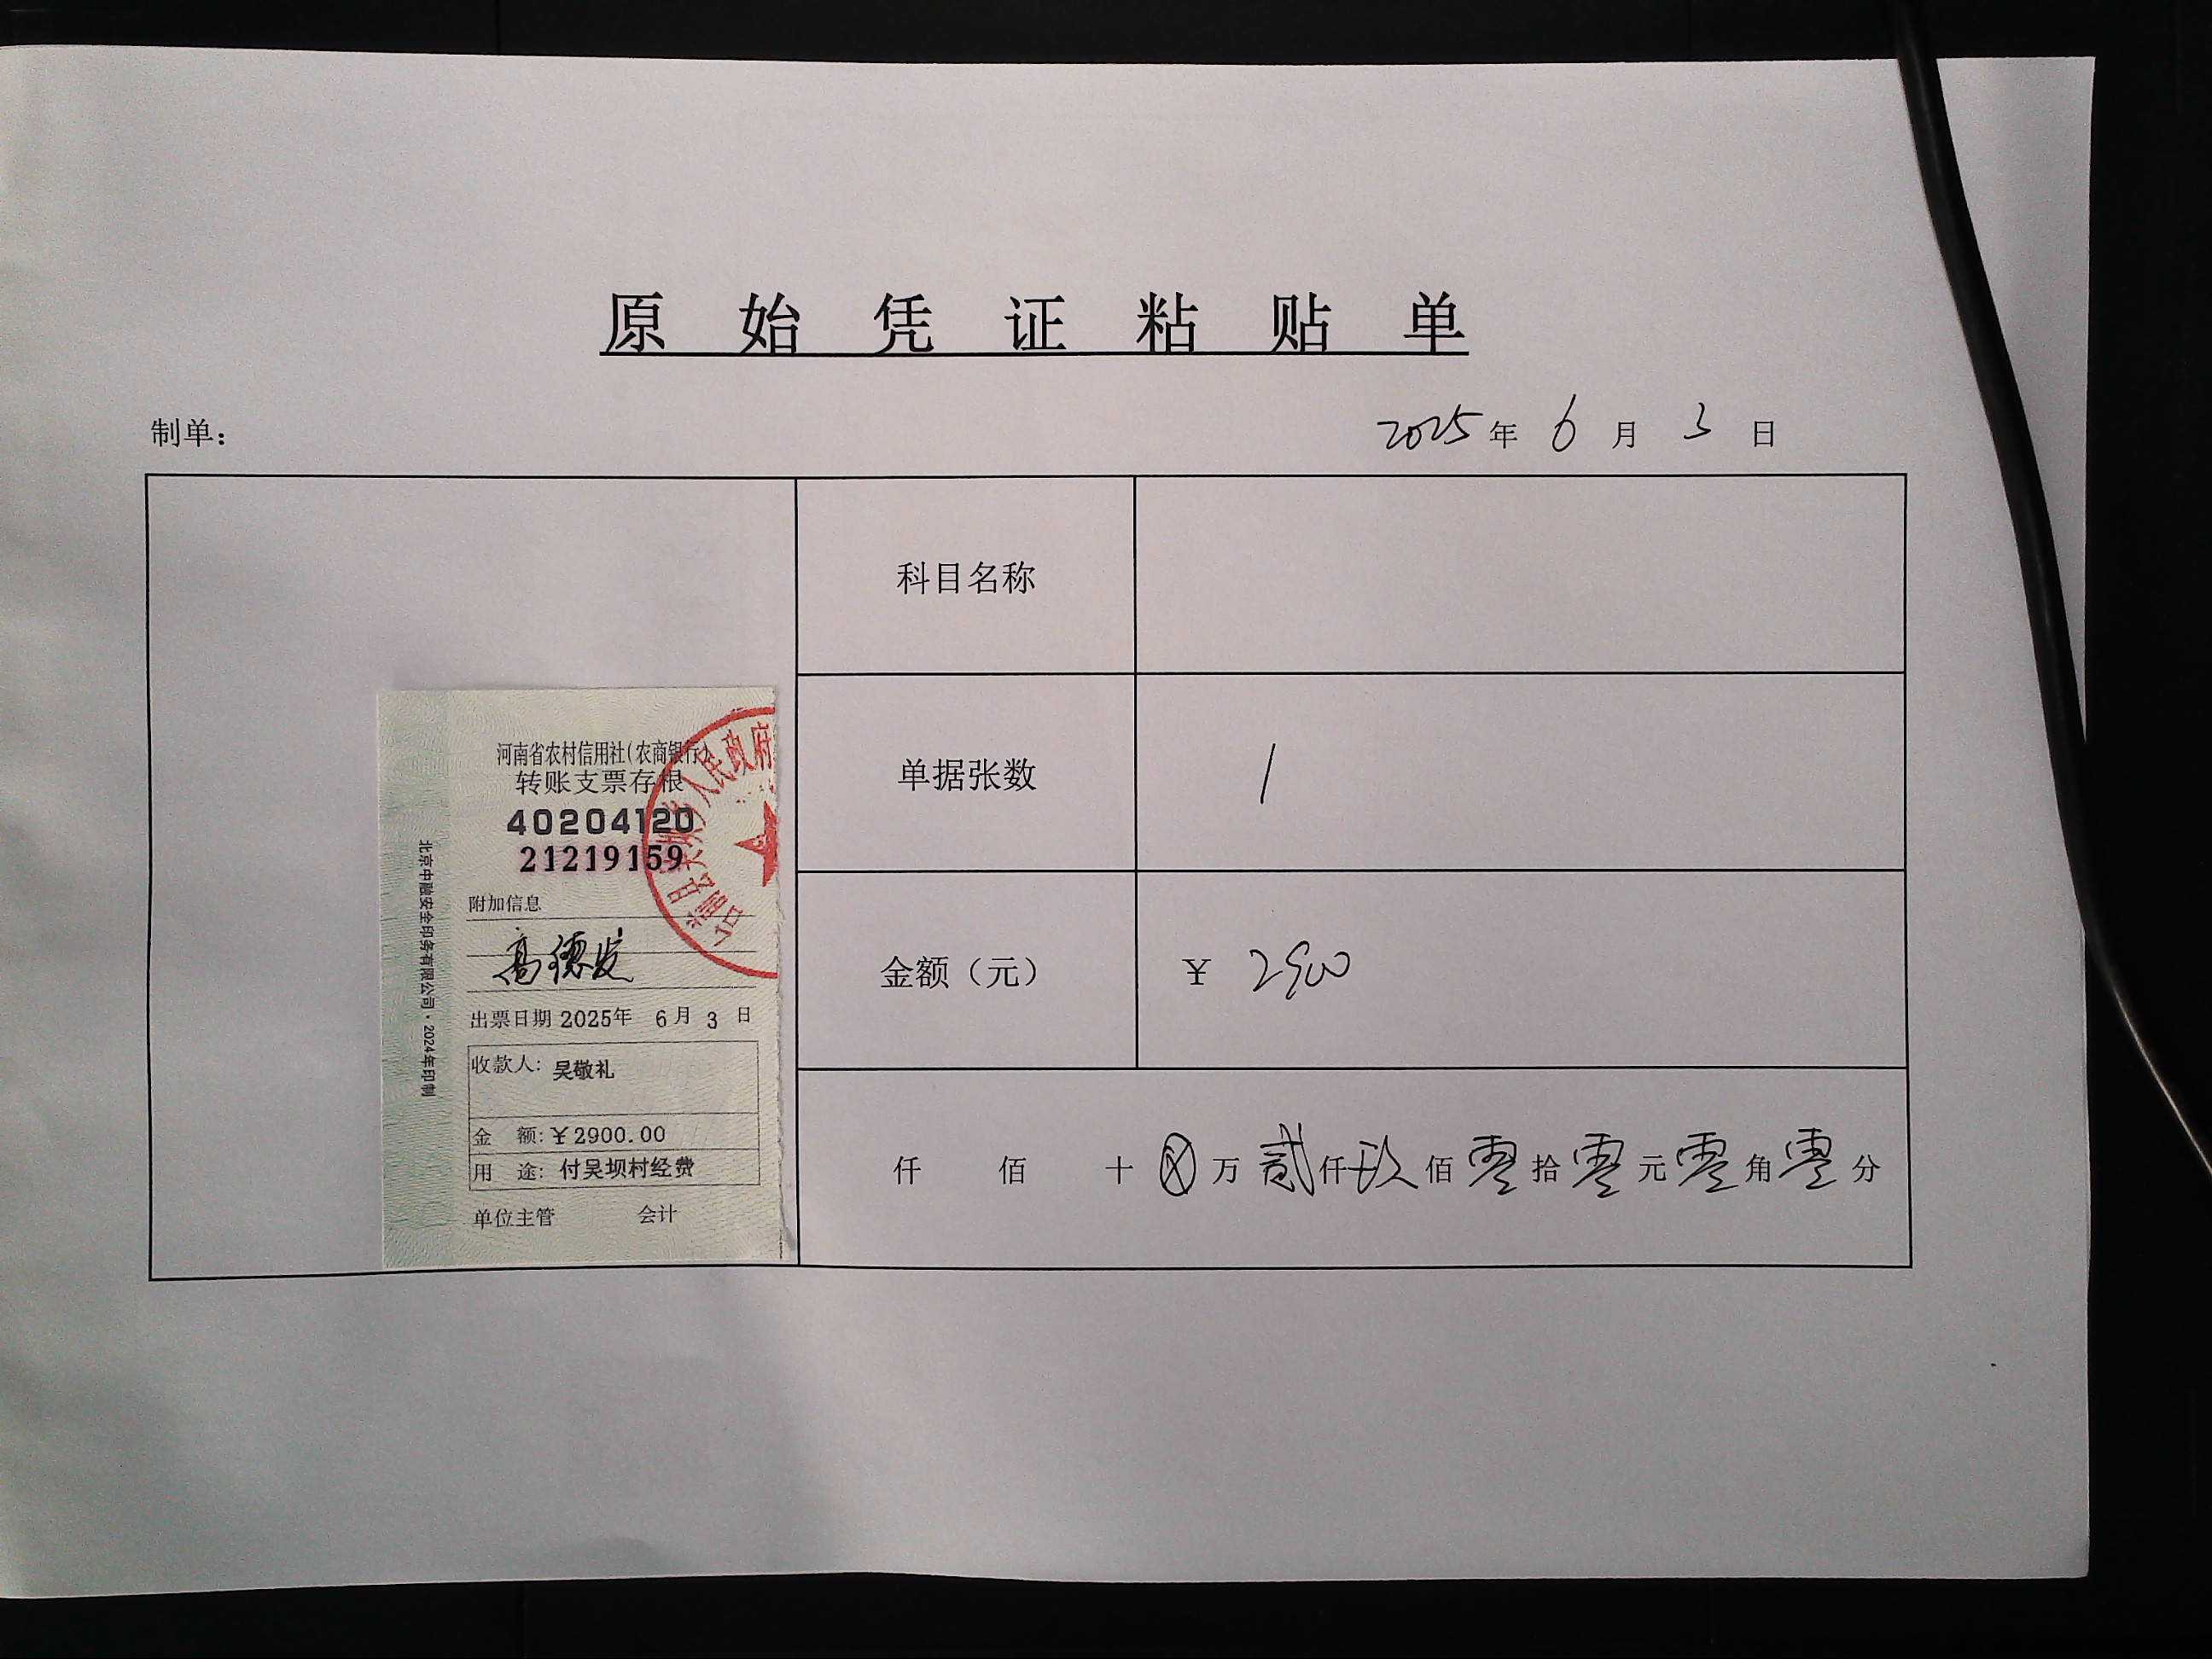 原始凭证粘贴单
制单：
2025年6月3日
科目名称
单据张数 1
金额（元） ￥ 2900
仟 佰 十 ⊗ 万 贰 仟 玖 佰 零 拾 零 元 零 角 零 分
河南省农村信用社(农商银行)
转账支票存根
40204120
21219159
附加信息
高德发
出票日期 2025年 6月 3 日
收款人: 吴敬礼
金 额: ￥2900.00
用 途: 付吴坝村经费
单位主管 会计
北京中融安全印务有限公司·2024年印制
人民政府